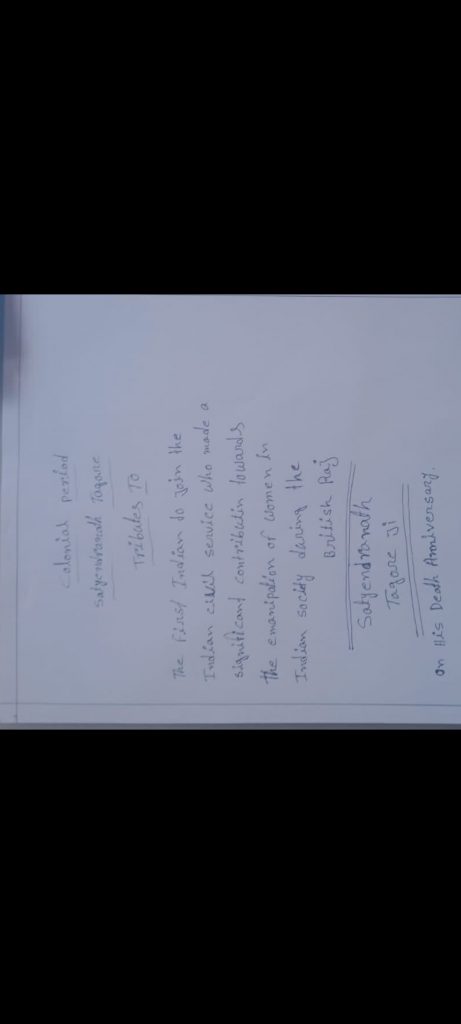 Colonial period
Satyendranath Tagore
Tributes To
The First Indian to join the
Indian civil service who made a
significant contributin towards
the emanipation of women in
Indian socity during the
British Raj
Satyendranath
Tagore Ji
on His Death Anniversary.